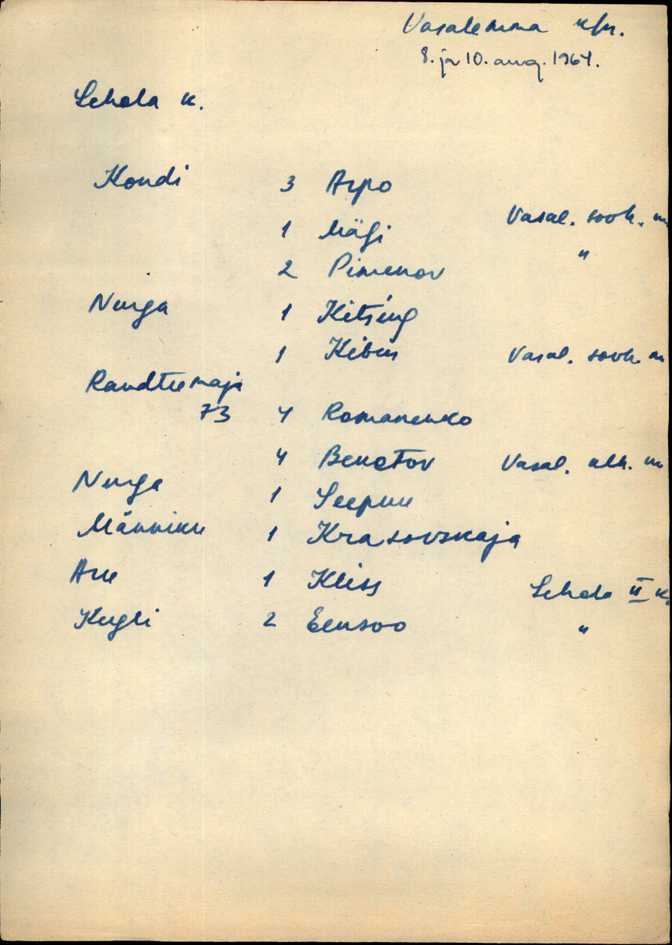 Vasalemma k/n.
8. ja 10. aug. 1964.
Lehola k.
Kondi 3 Arpo
1 Mägi Vasal. sovh.
2 Pimenov "
Nurga 1 Kitsing
1 Kibus Vasal. sovh.
Raudteemaja
73 4 Romanenko
4 Vasal.
Nurga 1 Seepuu
Männiku 1 Krasovskaja
Aru 1 Kliss Lehola II
Kugli 2 Eensoo "